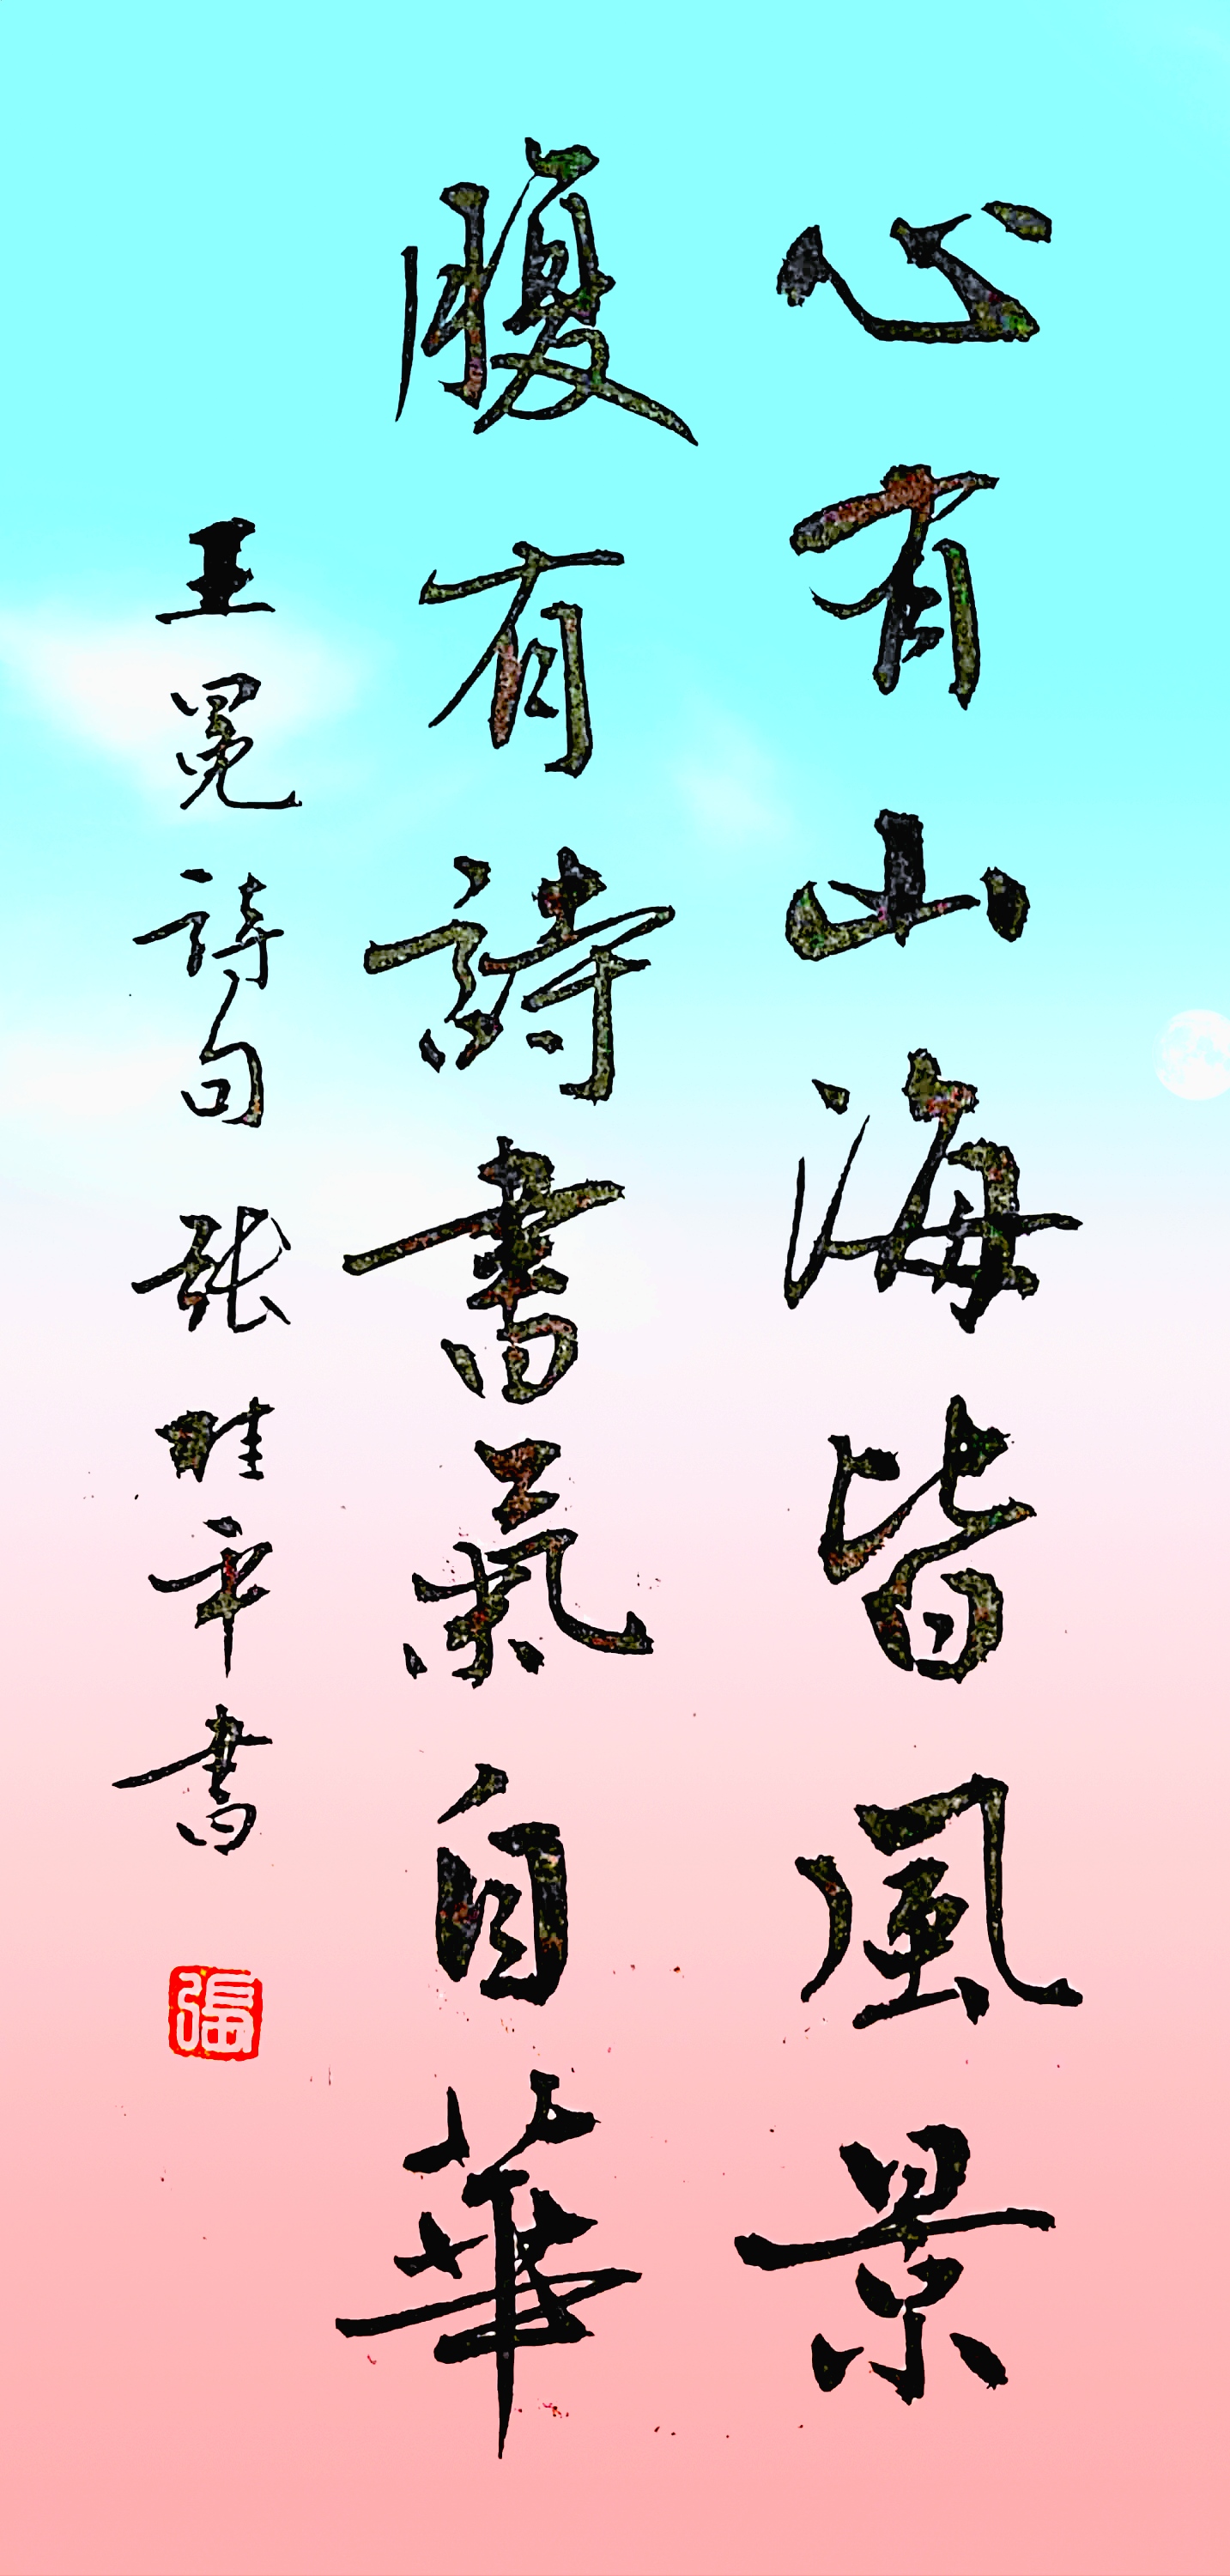 心有山海皆風景
腹有詩書氣自華
王冕詩句張畦平書
張